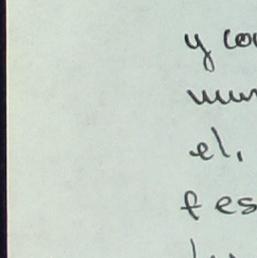 y co
mun
el.
fes